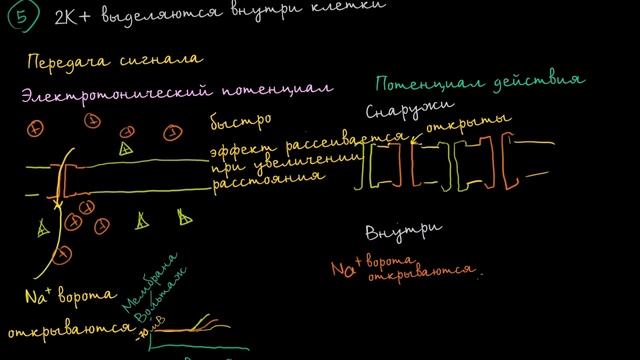 5 2К+ выделяются внутри клетки
Передача сигнала
Электротонический потенциал
Потенциал действия
быстро
эффект рассеивается
при увеличении
расстояния
Снаружи
открыты
Внутри
Na+ ворота
открываются
Na+ ворота
открываются
Мембрана
Вольтаж
-70 мВ